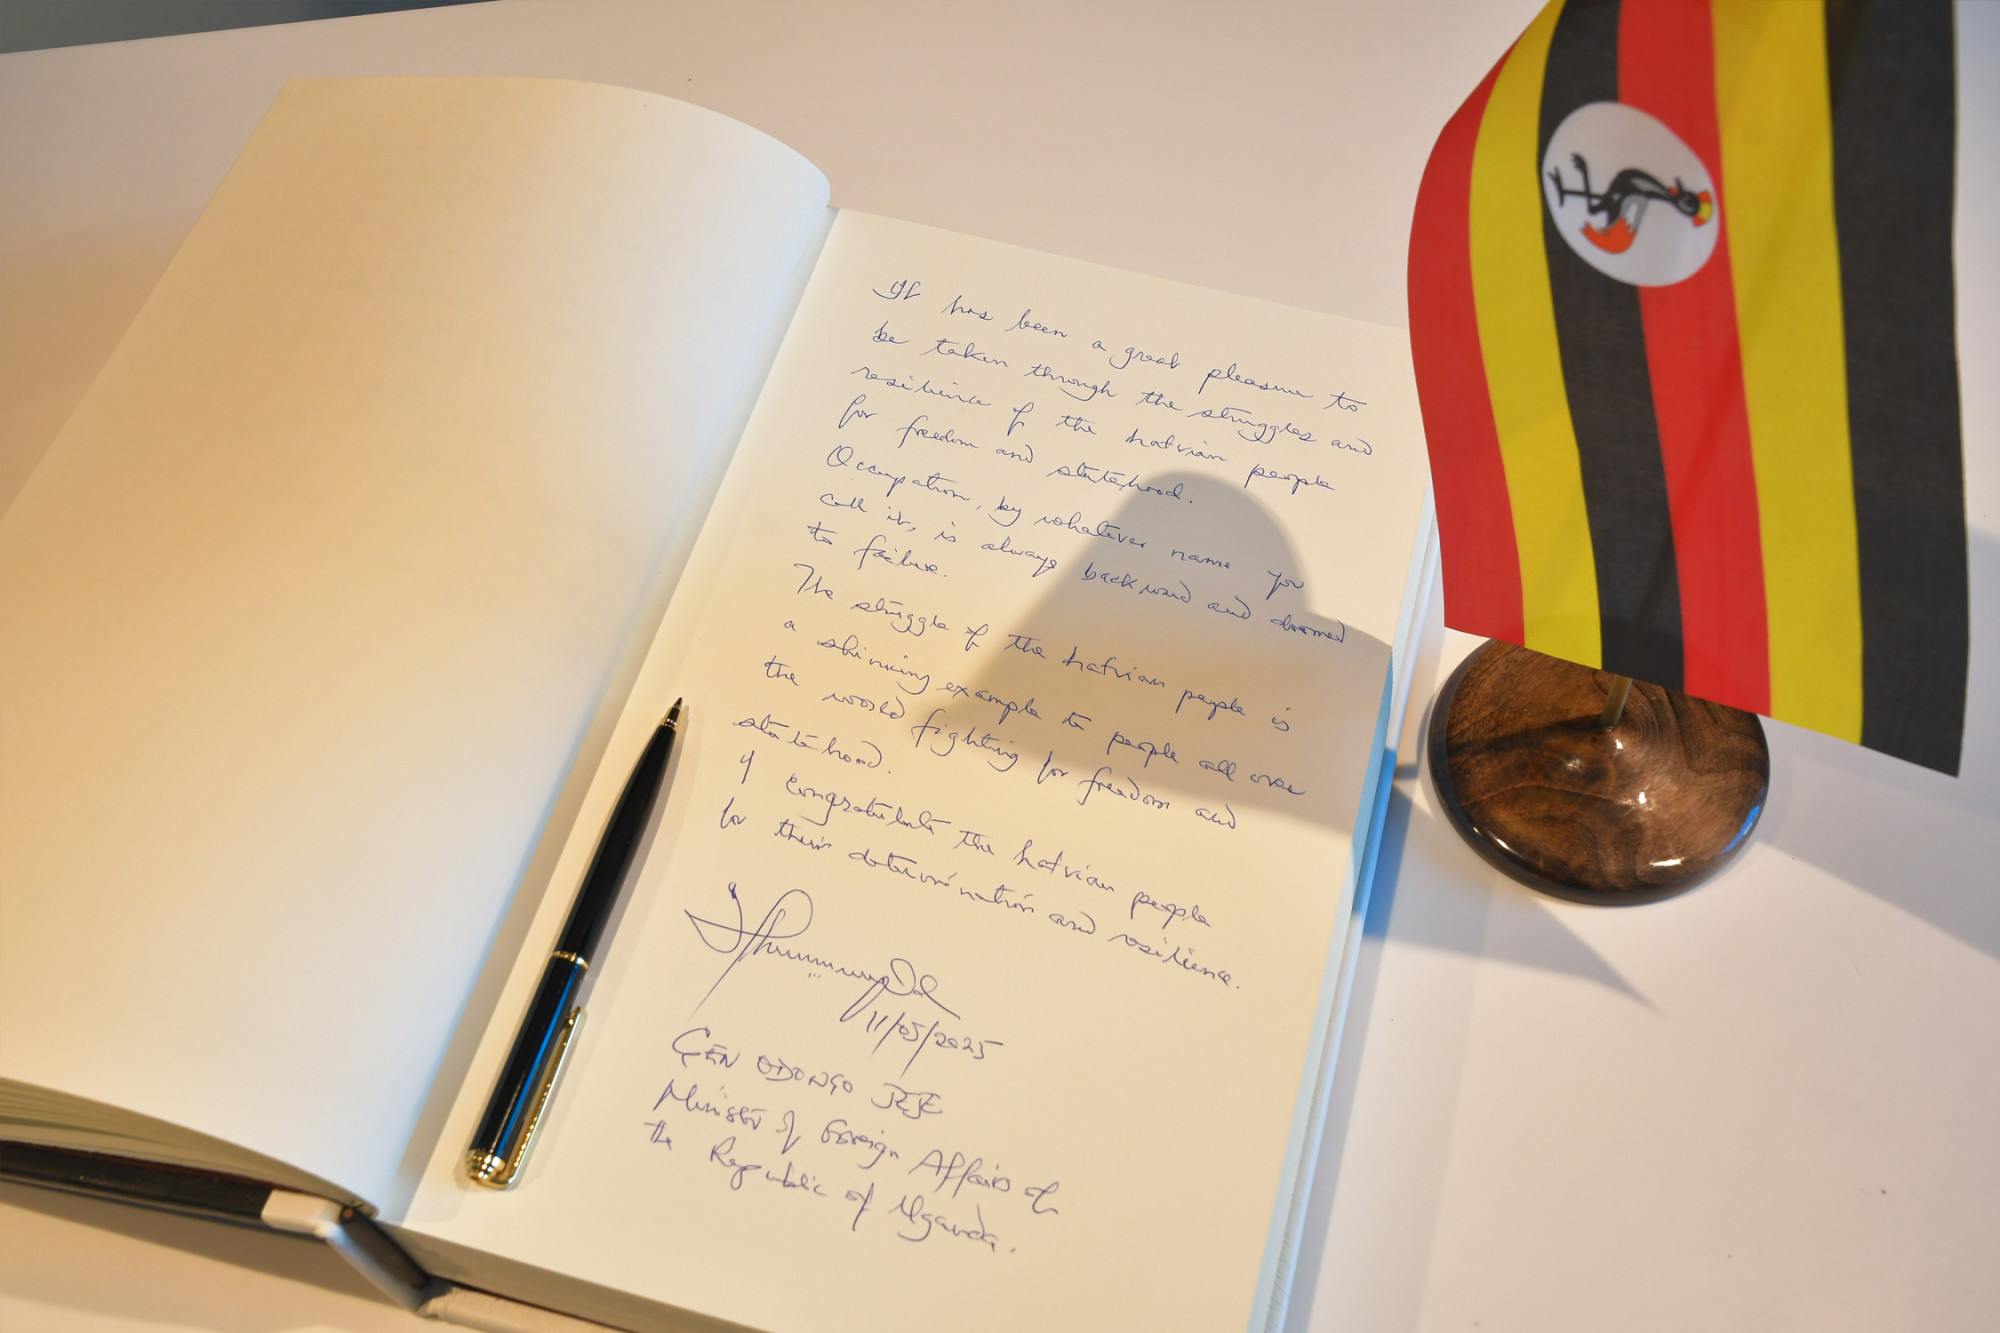 It has been a great pleasure to
be taken through the struggles and
resilience of the Latvian people
for freedom and statehood.
Occupation, by whatever name you
call it, is always backward and doomed
to failure.
The struggle of the Latvian people is
a shinning example to people all over
the world fighting for freedom and
statehood.
I congratulate the Latvian people
for their determination and resilience.
11/05/2025
GEN ODONGO JEJE
Minister of Foreign Affairs of
the Republic of Uganda.